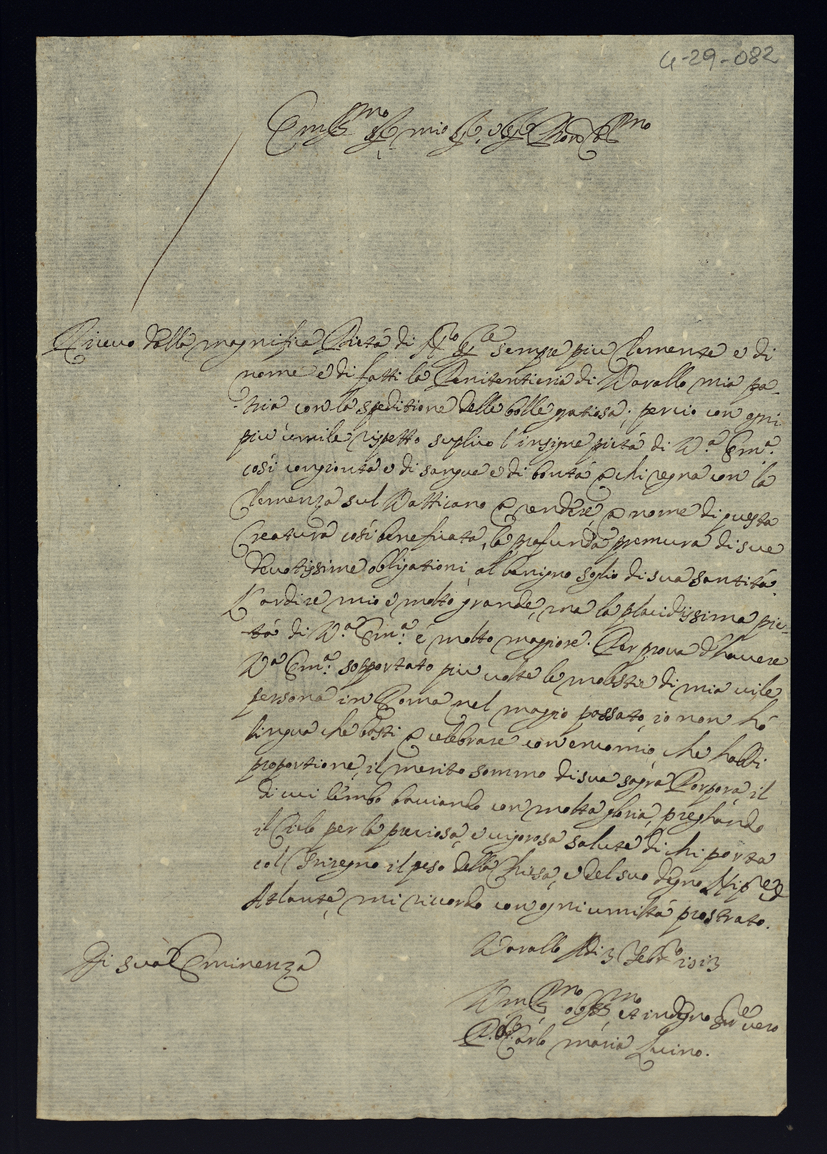 4-29-082
Em.mo Sig.r mio Sig.r, e Sig.r Pron Col.mo
Riceve dalla magnifica Pietá di sempre piu Clemente e di
nome e di fatti la Penitentieria di Varallo mia pa-
tria con la speditione delle bolle gratiosa; perció con ogni
piú úmile rispetto suplico l'insigne pietá di V.a Em.a
cosí congionta e di sangue e di bontá p chi regna con la
Clemenza sul Vatticano p rendere, p nome di questa
Creatura cosí beneficata, la profunda premura di sue
devotissime obligationi, al benigno soglio di sua santitá.
L'ardire mio é molto grande, ma la placidissima pie-
tá di V.a Em.a é molto magiore. Per prova d'havere
V.a Em.a sopportato piú volte le molestie di mia vile
persona in Roma nel magio passato, io non hó
lingua che basti p celebrare con encomio, che habbi
proportione, il merito sommo di sua sagra Porpora, il
di cui lembo bacciando con molta gloria, preghando
il Cielo per la preciosa, e vigorosa salute di chi porta
col Triregno il peso della Chiesa, e del suo degno Nip.e ed
Atlante, mi ricordo con ogni umiltá prostrato.
Varallo li 3 Febr.o 1713
Di sua Eminenza
Um.mo et indegno Ser.e vero
Carlo maria Luino.